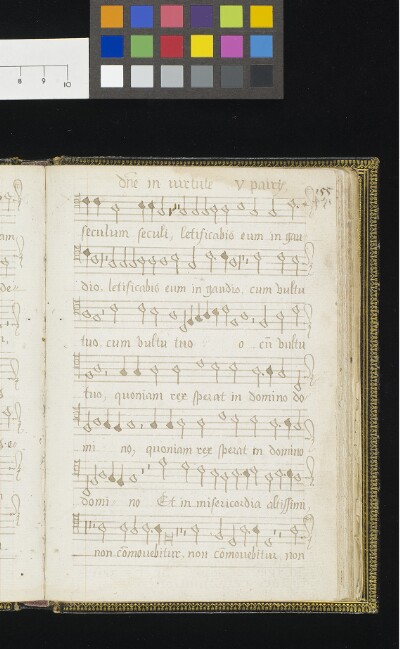 8 9 10
dñe in uirtute v part
155
seculum seculi, letificabis eum in gau
dio. letificabis eum in gaudio. cum vultu
tuo. cum vultu tuo o. cũ vultu
tuo, quoniam rex sperat in domino do
mi no, quoniam rex sperat in domino
domi no Et in misericordia altissimi,
non cõmouebitur. non cõmouebitur, non